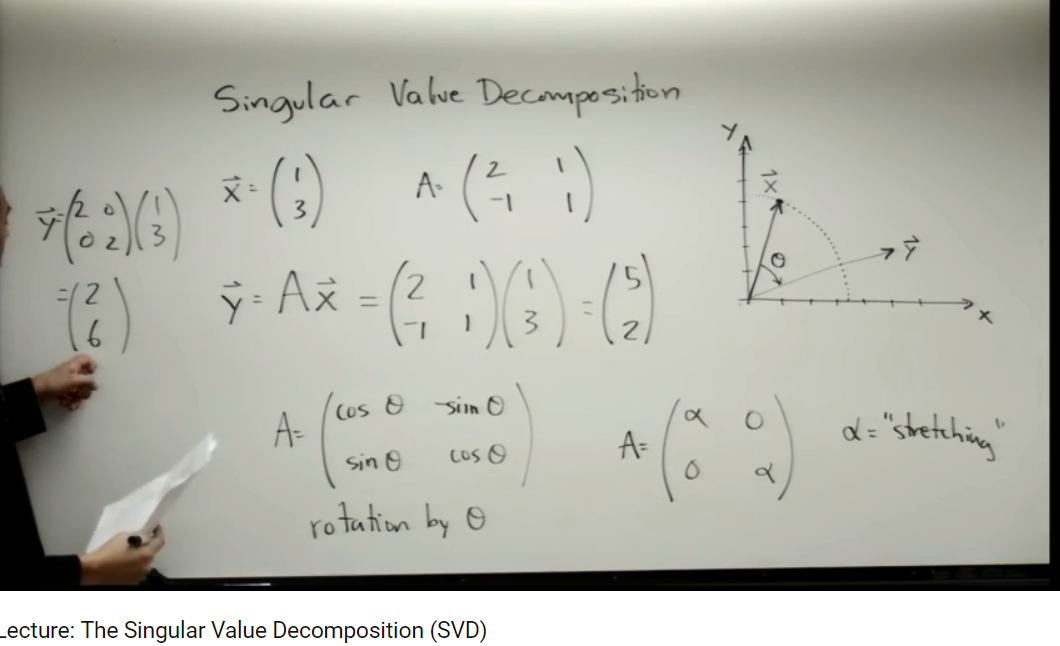 Singular Value Decomposition
x⃗ = (1 3)
A= (2 1 -1 1)
y⃗=(2 0 0 2)(1 3)
=(2 6)
y⃗ = Ax⃗ = (2 1 -1 1)(1 3) = (5 2)
y
x⃗
θ
y⃗
x
A= (cos θ -sin θ
sin θ cos θ)
rotation by θ
A= (α 0
0 α)
α = "stretching"
Lecture: The Singular Value Decomposition (SVD)